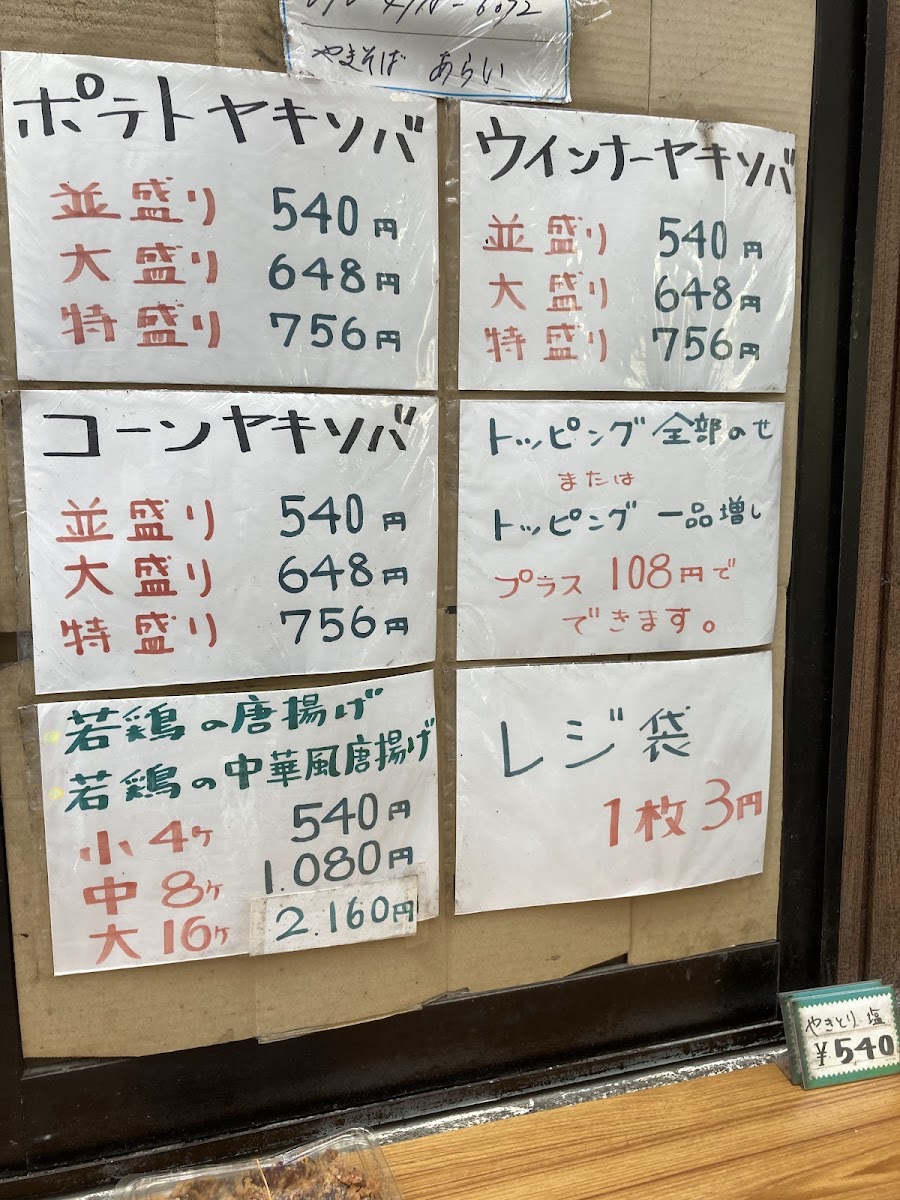 やきそば あらい
ポテトヤキソバ
並盛り 540円
大盛り 648円
特盛り 756円
ウインナーヤキソバ
並盛り 540円
大盛り 648円
特盛り 756円
コーンヤキソバ
並盛り 540円
大盛り 648円
特盛り 756円
トッピング全部のせ
または
トッピング一品増し
プラス 108円で
できます。
若鶏の唐揚げ
若鶏の中華風唐揚げ
小 4ヶ 540円
中 8ヶ 1.080円
大 16ヶ 2.160円
レジ袋
1枚3円
やきとり 塩
¥540